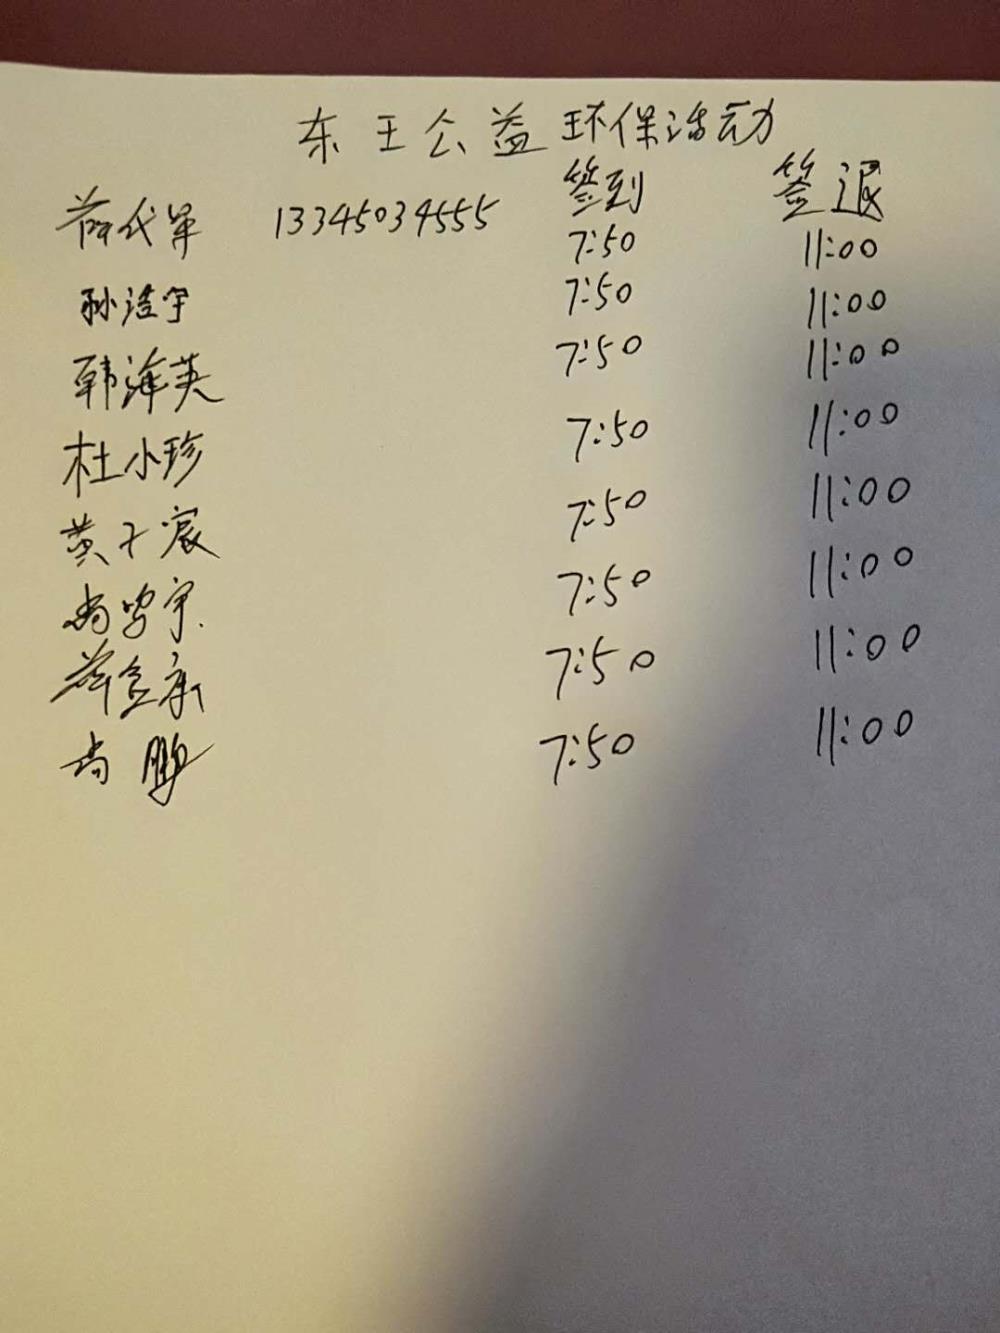 东王公益环保活动
签到 签退
薛代军 13345034555 7:50 11:00
孙洁宇 7:50 11:00
韩海英 7:50 11:00
杜小珍 7:50 11:00
黄子宸 7:50 11:00
尚 宇 7:50 11:00
薛 7:50 11:00
尚鹏 7:50 11:00